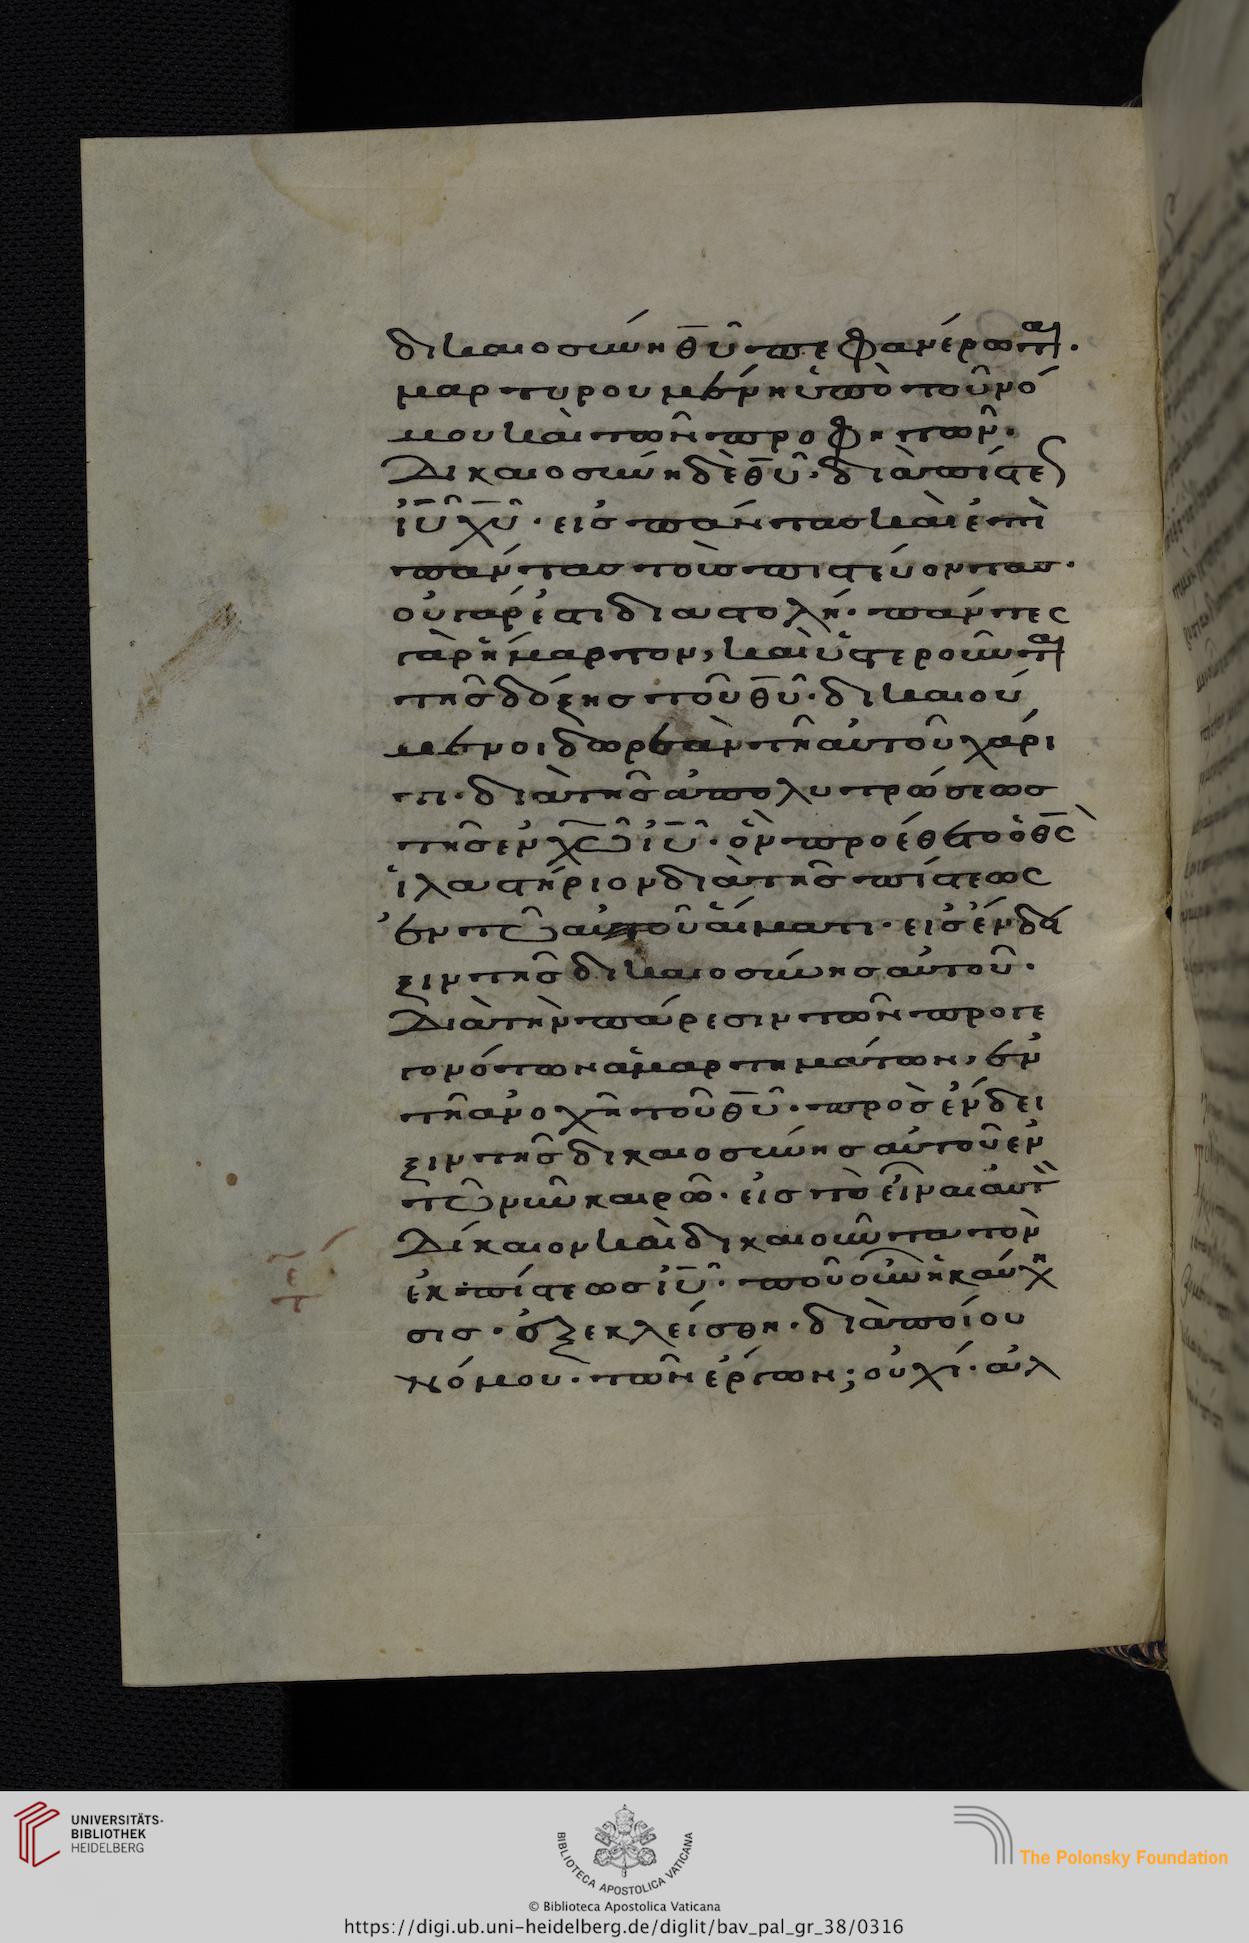 δικαιοσύνη θ̅υ̅ πεφανέρωτ(αι)·
μαρτυρουμένη ὑπὸ τοῦ νό
μου καὶ τῶν προφητῶν·
Δικαιοσύνη δὲ θ̅υ̅· διὰ πίστε(ως)
ἰ̅υ̅ χ̅υ̅· εἰς πάντας καὶ ἐπὶ
πάντας τοὺς πιστεύοντας·
οὐ γάρ ἐστι διαστολή· πάντες
γὰρ ἥμαρτον, καὶ ὑστεροῦντ(αι)
τῆς δόξης τοῦ θ̅υ̅· δικαιού
μενοι δωρεὰν τῆ αὐτοῦ χάρι
τι· διὰ τῆς ἀπολυτρώσεως
τῆς ἐν χ̅ω̅ ἰ̅υ̅· ὃν προέθετο ὁ θ̅ς̅
ἱλαστήριον διὰ τῆς πίστεως
ἐν τῶ αὐτοῦ αἵματι· εἰς ἔνδει
ξιν τῆς δικαιοσύνης αὐτοῦ·
Διὰ τὴν πάρεσιν τῶν προγε
γονότων ἁμαρτημάτων, ἐν
τῆ ἀνοχῆ τοῦ θ̅υ̅· πρὸς ἔνδει
ξιν τῆς δικαιοσύνης αὐτοῦ ἐν
τῶ νῦν καιρῶ· εἰς τὸ εἶναι αὐτὸ(ν)
Δίκαιον καὶ δικαιοῦντα τὸν
ἐκ πίστεως ἰ̅υ̅· ποῦ οὖν ἡ καύχη
σις· ἐξεκλείσθη· διὰ ποίου
Νόμου· τῶν ἔργων; οὐχί· ἀλ
UNIVERSITÄTS-
BIBLIOTHEK
HEIDELBERG
BIBLIOTECA APOSTOLICA VATICANA
The Polonsky Foundation
© Biblioteca Apostolica Vaticana
https://digi.ub.uni-heidelberg.de/diglit/bav_pal_gr_38/0316